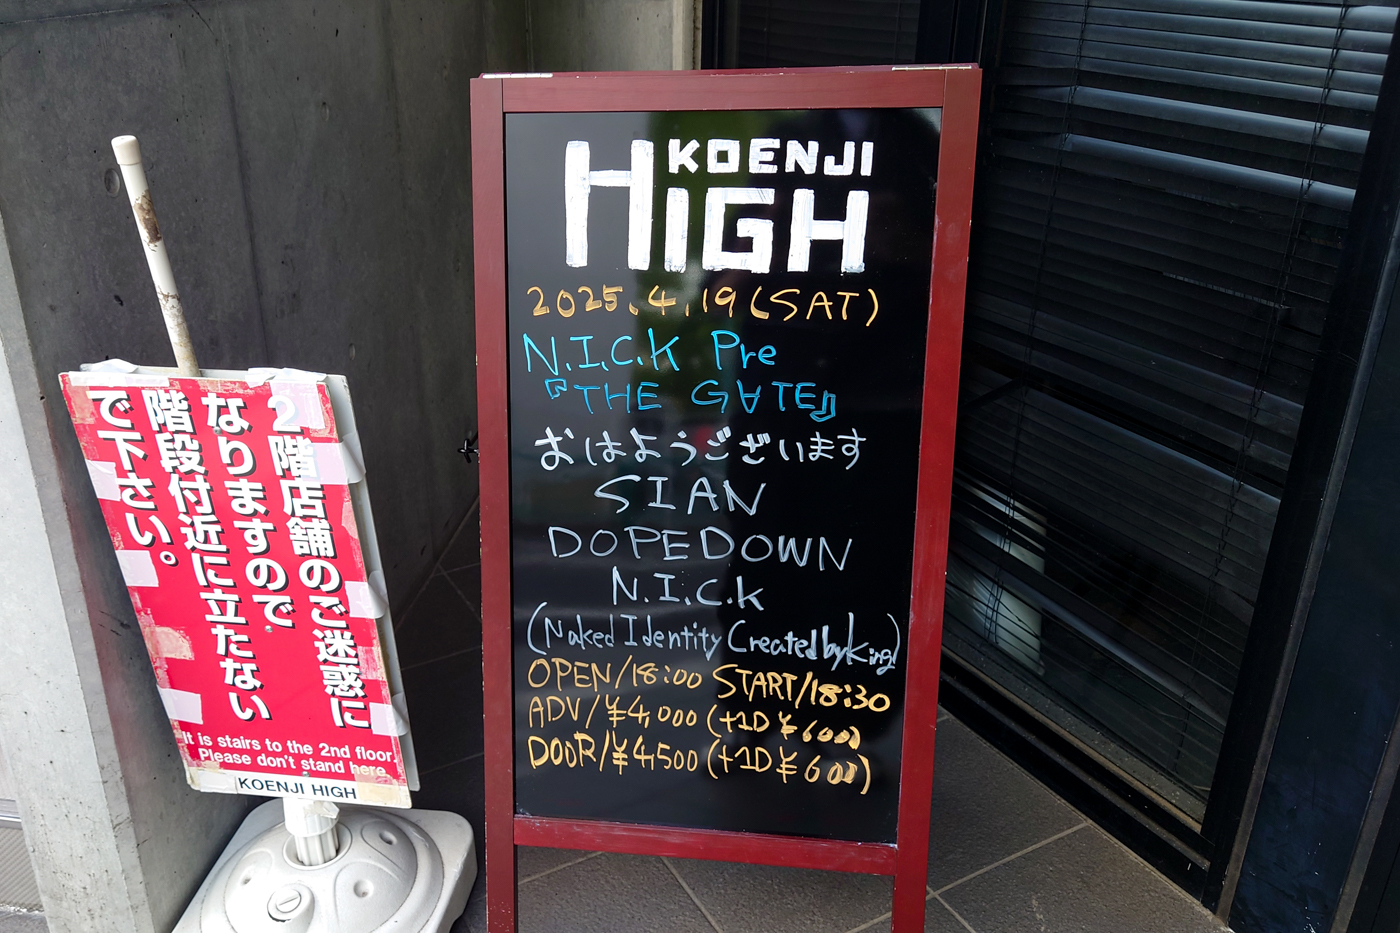 KOENJI
HIGH
2025.4.19(SAT)
N.I.C.K Pre
『THE G∀TE』
おはようございます
SIAN
DOPEDOWN
N.I.C.K
(Naked Identity Created by King)
OPEN/18:00 START/18:30
ADV/¥4,000(+1D¥600)
DOOR/¥4,500(+1D¥600)
2階店舗のご迷惑に
なりますので
階段付近に立たない
で下さい。
It is stairs to the 2nd floor.
Please don't stand here.
KOENJI HIGH